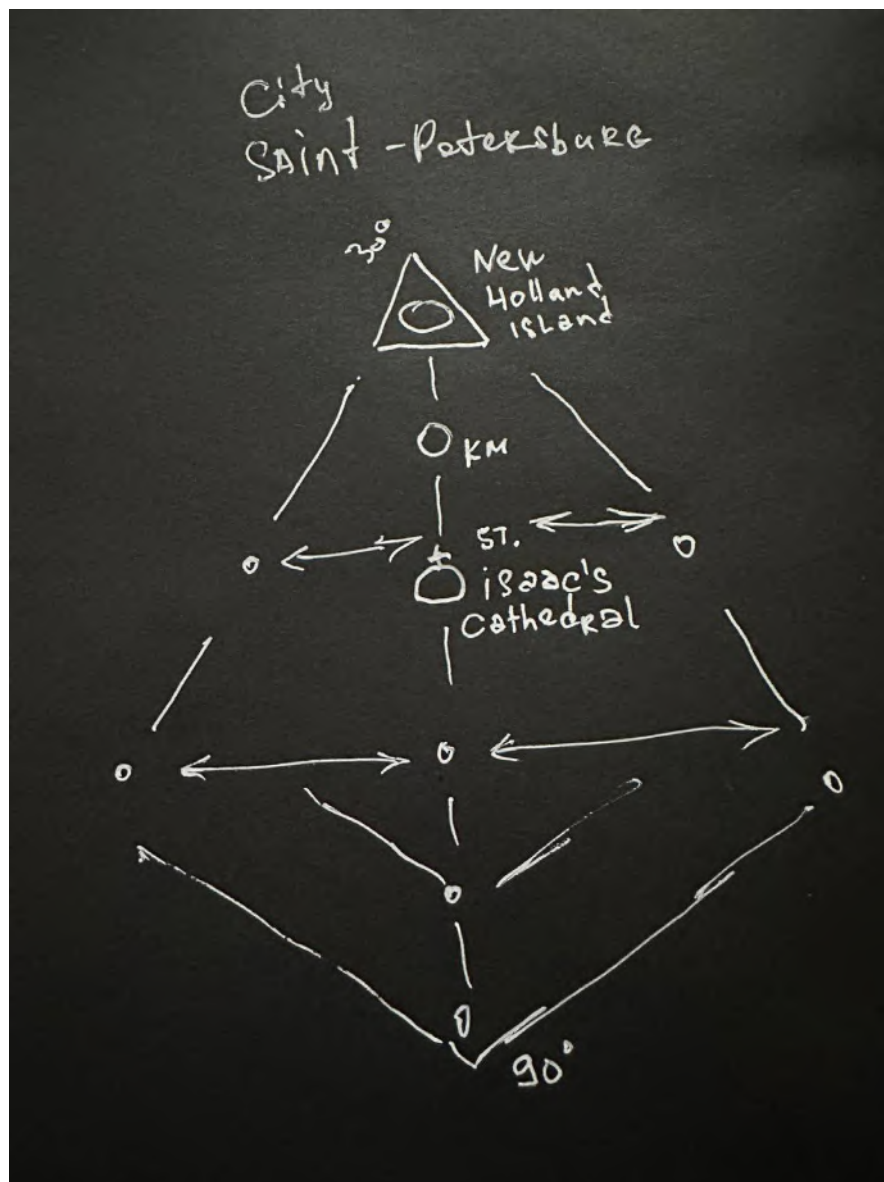 City
SAint-Petersburg
New
Holland
island
KM
ST.
isaac's
Cathedral
90°